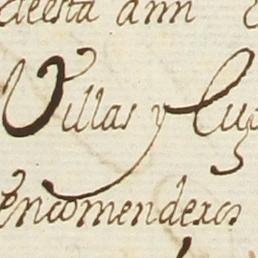 deesta ann
Villas y Lug
encomenderos